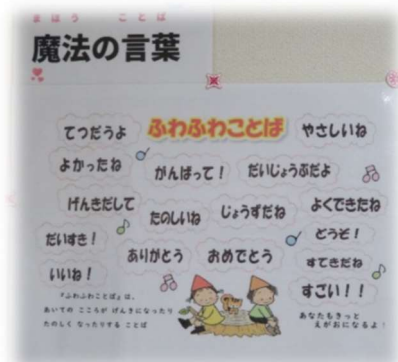 まほう ことば
魔法の言葉
ふわふわことば
てつだうよ
やさしいね
よかったね
がんばって！
だいじょうぶだよ
げんきだして
たのしいね
じょうずだね
よくできたね
だいすき！
ありがとう
おめでとう
どうぞ！
いいね！
すてきだね
すごい！！
『ふわふわことば』は、
あいての こころが げんきになったり
たのしく なったりする ことば
あなたもきっと
えがおになるよ！